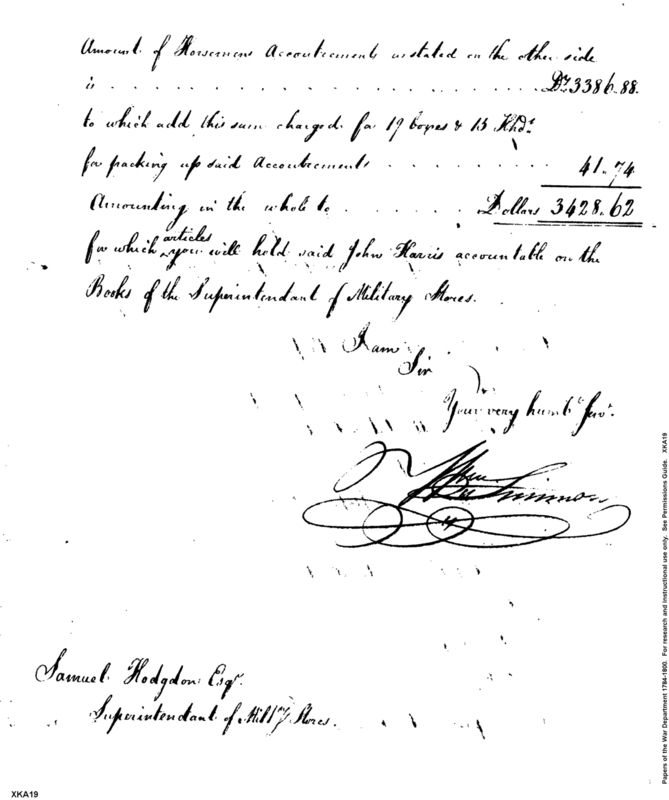 Amount of Horsemens Accoutrements as stated on the other side
is . . . . . . . . . . . . . . . . . . . . . . Drs 3386..88.
to which add this sum charged for 19 boxes & 15 Hhds
for packing up said Accoutrements . . . . . . . . 41..74
Amounting in the whole to . . . . . . Dollars 3428..62
for which articles you will hold said John Harris accountable on the
Books of the Superintendant of Military Stores.
I am
Sir
Your very humb. Servt.
Wm Simmons
Samuel Hodgdon Esqr.
Superintendant of Milty Stores.
XKA19
Papers of the War Department 1784-1800. For research and instructional use only. See Permissions Guide. XKA19